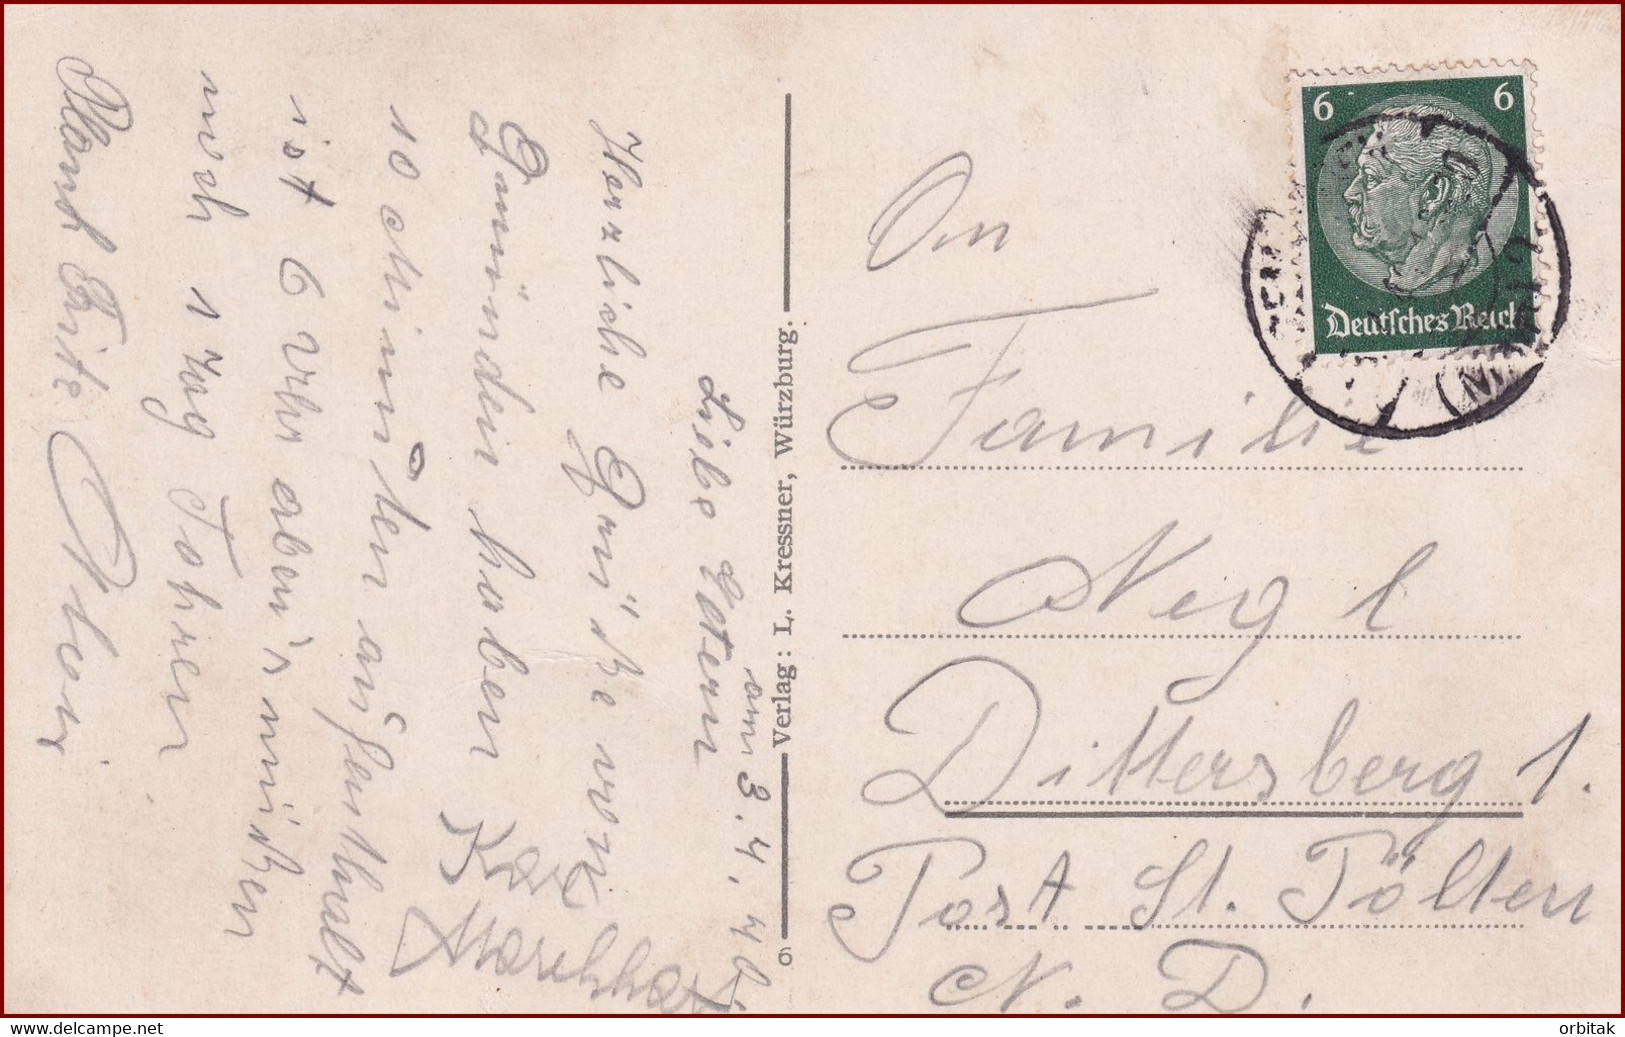 am 3. 4. 40.
Liebe Eltern
Herzliche Grüße von
Gmünden haben
10 Minuten aufenthalt
ist 6 Uhr aben's müßen
noch 1 Tag Fohren
Fritz
Karl
Verlag: L. Kressner, Würzburg.
6
6 6
Deutsches Reich
An
Familie
Negl
Dittersberg 1.
Post St. Pölten
N. D.
www.delcampe.net
orbitak